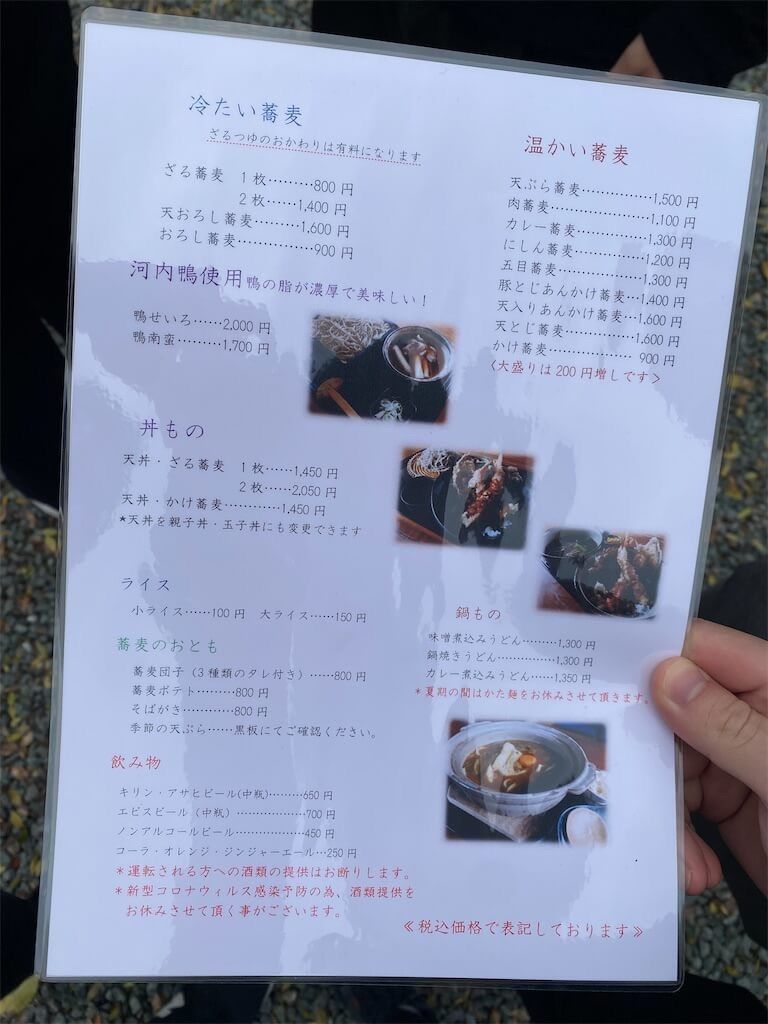 冷たい蕎麦
ざるつゆのおかわりは有料になります
ざる蕎麦 1枚………800円
2枚……1,400円
天おろし蕎麦………1,600円
おろし蕎麦……………900円
河内鴨使用 鴨の脂が濃厚で美味しい！
鴨せいろ……2,000円
鴨南蛮………1,700円
丼もの
天丼・ざる蕎麦 1枚……1,450円
2枚……2,050円
天丼・かけ蕎麦…………1,450円
★天丼を親子丼・玉子丼にも変更できます
ライス
小ライス……100円 大ライス……150円
蕎麦のおとも
蕎麦団子（3種類のタレ付き）……800円
蕎麦ポテト………800円
そばがき…………800円
季節の天ぷら……黒板にてご確認ください。
飲み物
キリン・アサヒビール(中瓶)………650円
エビスビール（中瓶）……………700円
ノンアルコールビール……………450円
コーラ・オレンジ・ジンジャーエール…250円
＊運転される方への酒類の提供はお断りします。
＊新型コロナウィルス感染予防の為、酒類提供を
お休みさせて頂く事がございます。
温かい蕎麦
天ぷら蕎麦……………1,500円
肉蕎麦…………………1,100円
カレー蕎麦……………1,300円
にしん蕎麦……………1,200円
五目蕎麦………………1,300円
豚とじあんかけ蕎麦…1,400円
天入りあんかけ蕎麦…1,600円
天とじ蕎麦……………1,600円
かけ蕎麦……………… 900円
〈大盛りは200円増しです〉
鍋もの
味噌煮込みうどん………1,300円
鍋焼きうどん……………1,300円
カレー煮込みうどん……1,350円
＊夏期の間はかた麺をお休みさせて頂きます。
≪税込価格で表記しております≫